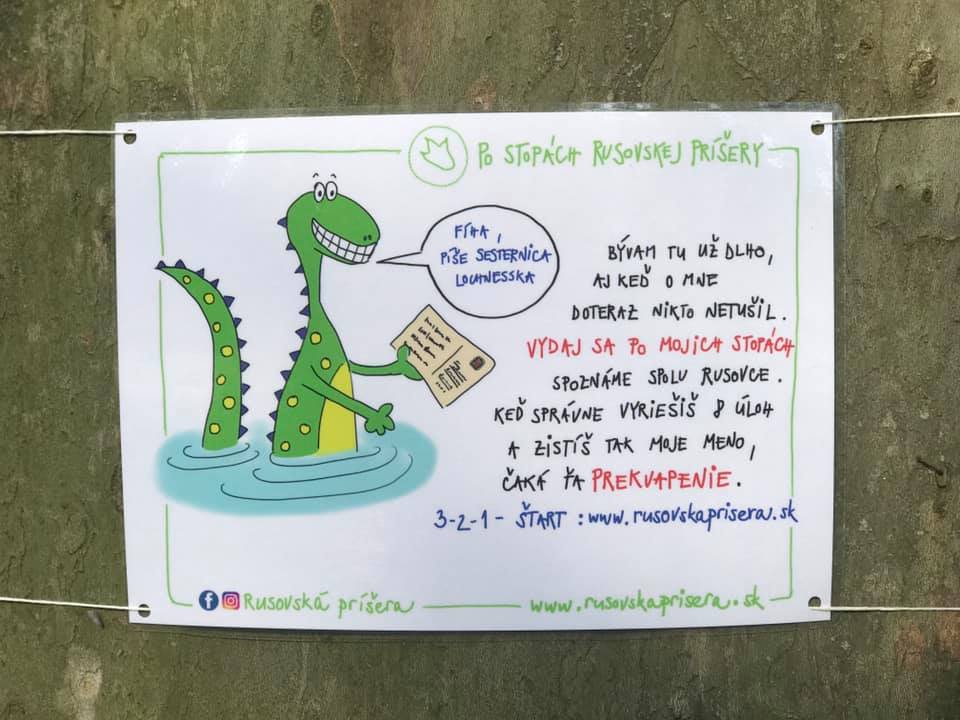 PO STOPÁCH RUSOVSKEJ PRÍŠERY
FÍHA,
PÍŠE SESTERNICA
LOCHNESSKA
BÝVAM TU UŽ DLHO,
AJ KEĎ O MNE
DOTERAZ NIKTO NETUŠIL.
VYDAJ SA PO MOJICH STOPÁCH
SPOZNÁME SPOLU RUSOVCE.
KEĎ SPRÁVNE VYRIEŠIŠ 8 ÚLOH
A ZISTÍŠ TAK MOJE MENO,
ČAKÁ ŤA PREKVAPENIE.
3-2-1- ŠTART : www.rusovskaprisera.sk
Rusovská príšera
www.rusovskaprisera.sk